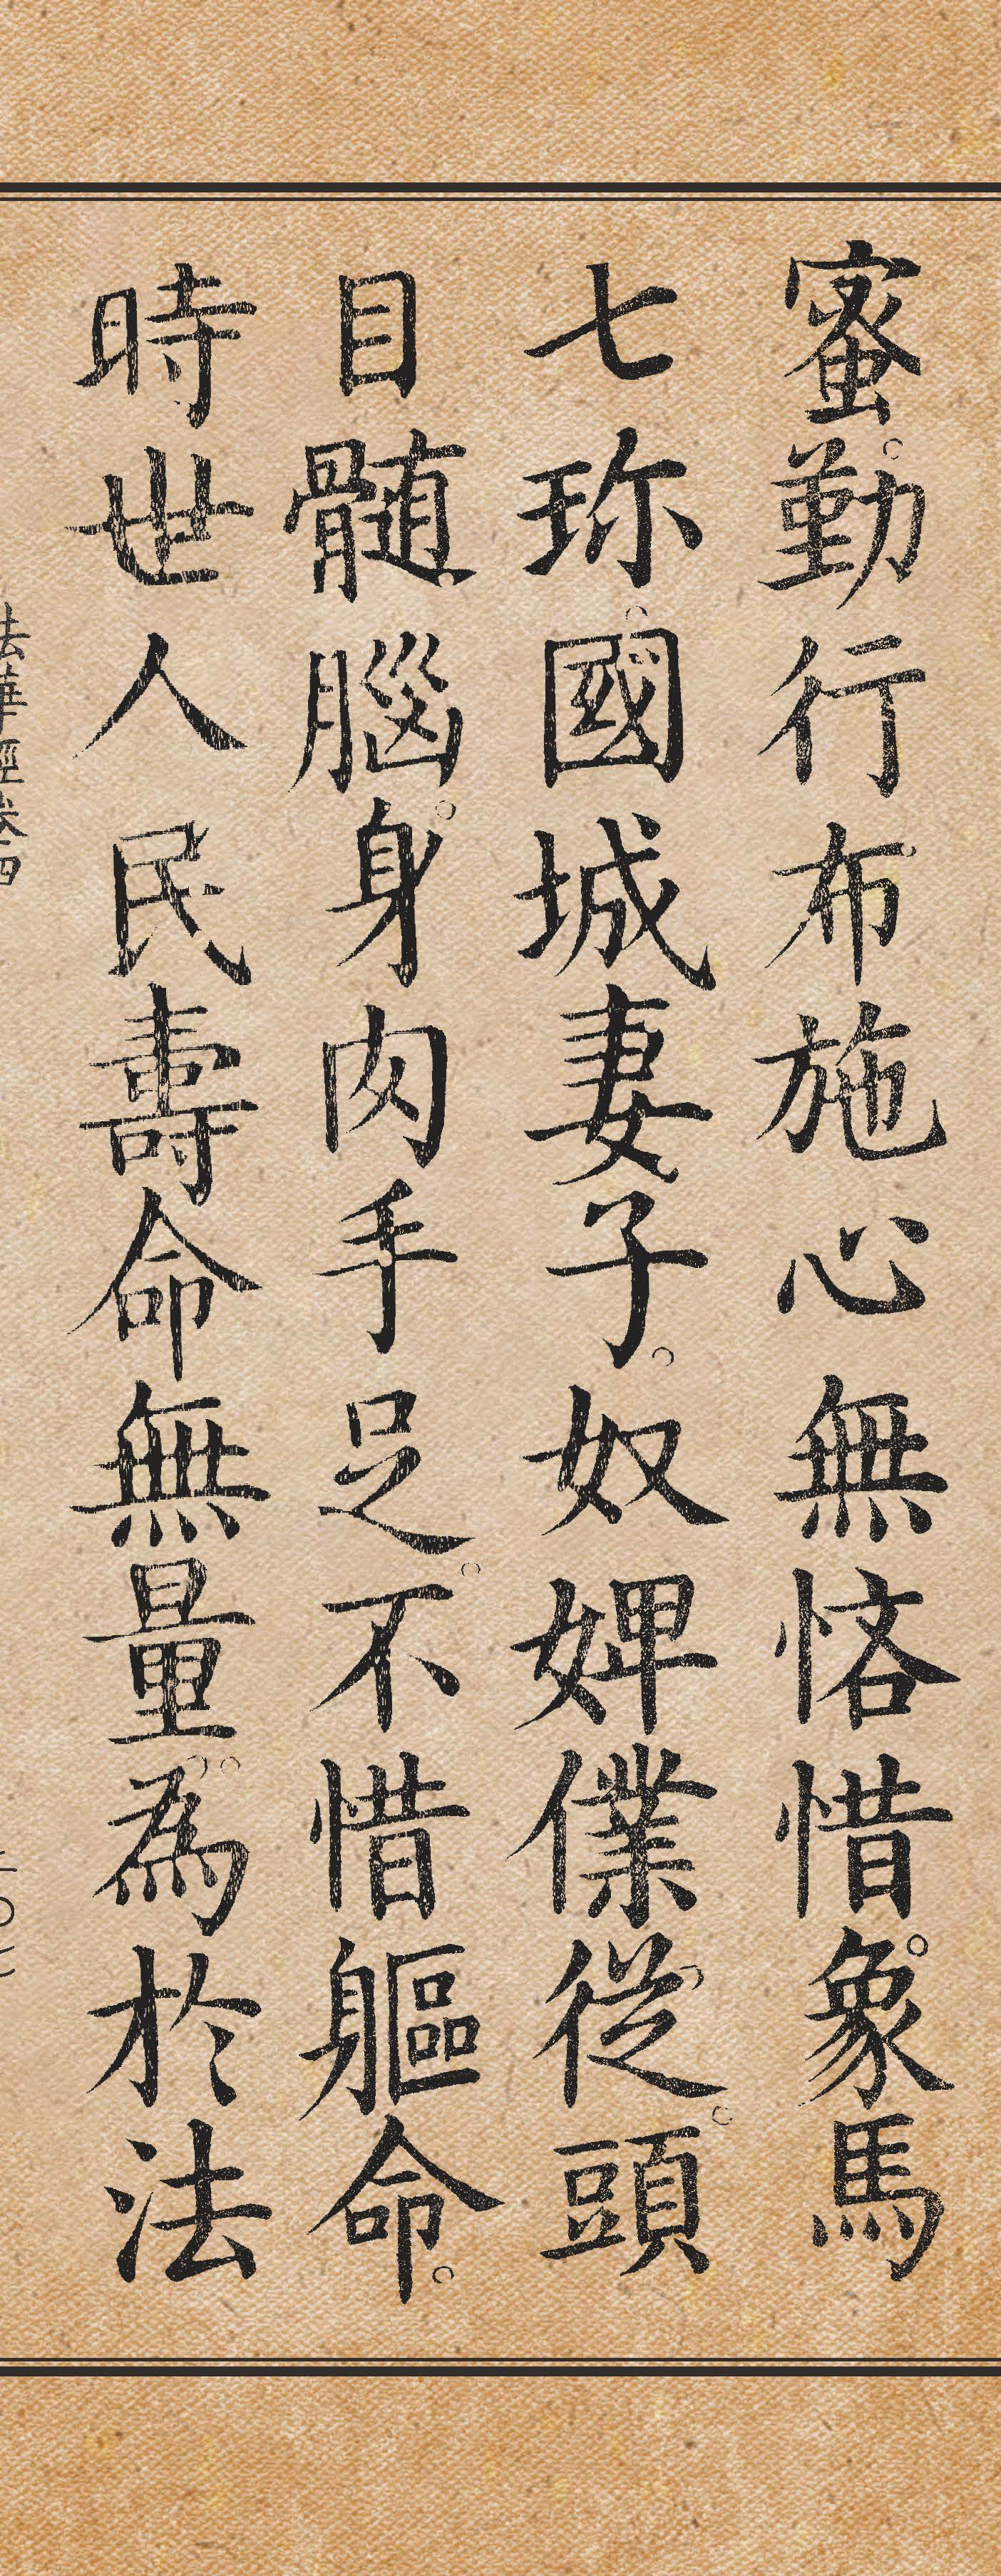 蜜勤行布施心無悋惜象馬
七珎國城妻子奴婢僕従頭
目髄腦身肉手足不惜軀命
時世人民壽命無量為於法
法華經卷四